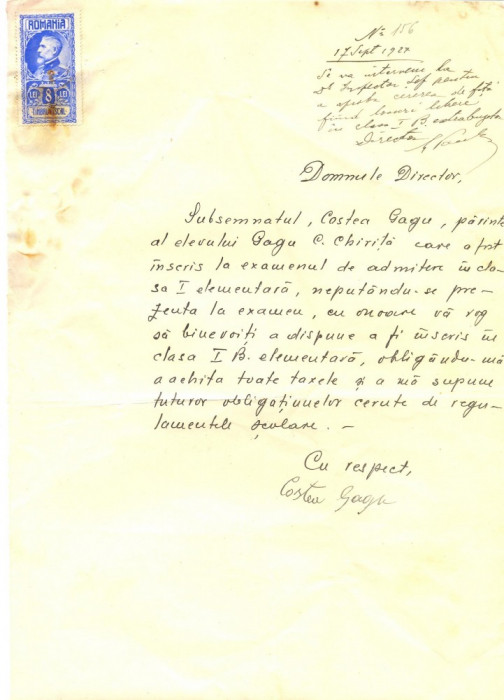 ROMANIA
LEI 8 LEI
TIMBRU FISCAL
No 156
17 Sept 1927
Se va interveni la
Dl Inspector Șef pentru
a aproba cererea de față
fiind locuri libere
în clasa I B. extrabugetară
Director
Domnule Director,
Subsemnatul, Costea Gagu, părinte
al elevului Gagu C. Chiriță care a fost
înscris la examenul de admitere în cla-
sa I elementară, neputându-se pre-
zenta la examen, cu onoare vă rog
să binevoiți a dispune a fi înscris în
clasa I B. elementară, obligându-mă
a achita toate taxele și a mă supune
tuturor obligațiunelor cerute de regu-
lamentele școlare. —
Cu respect,
Costea Gagu